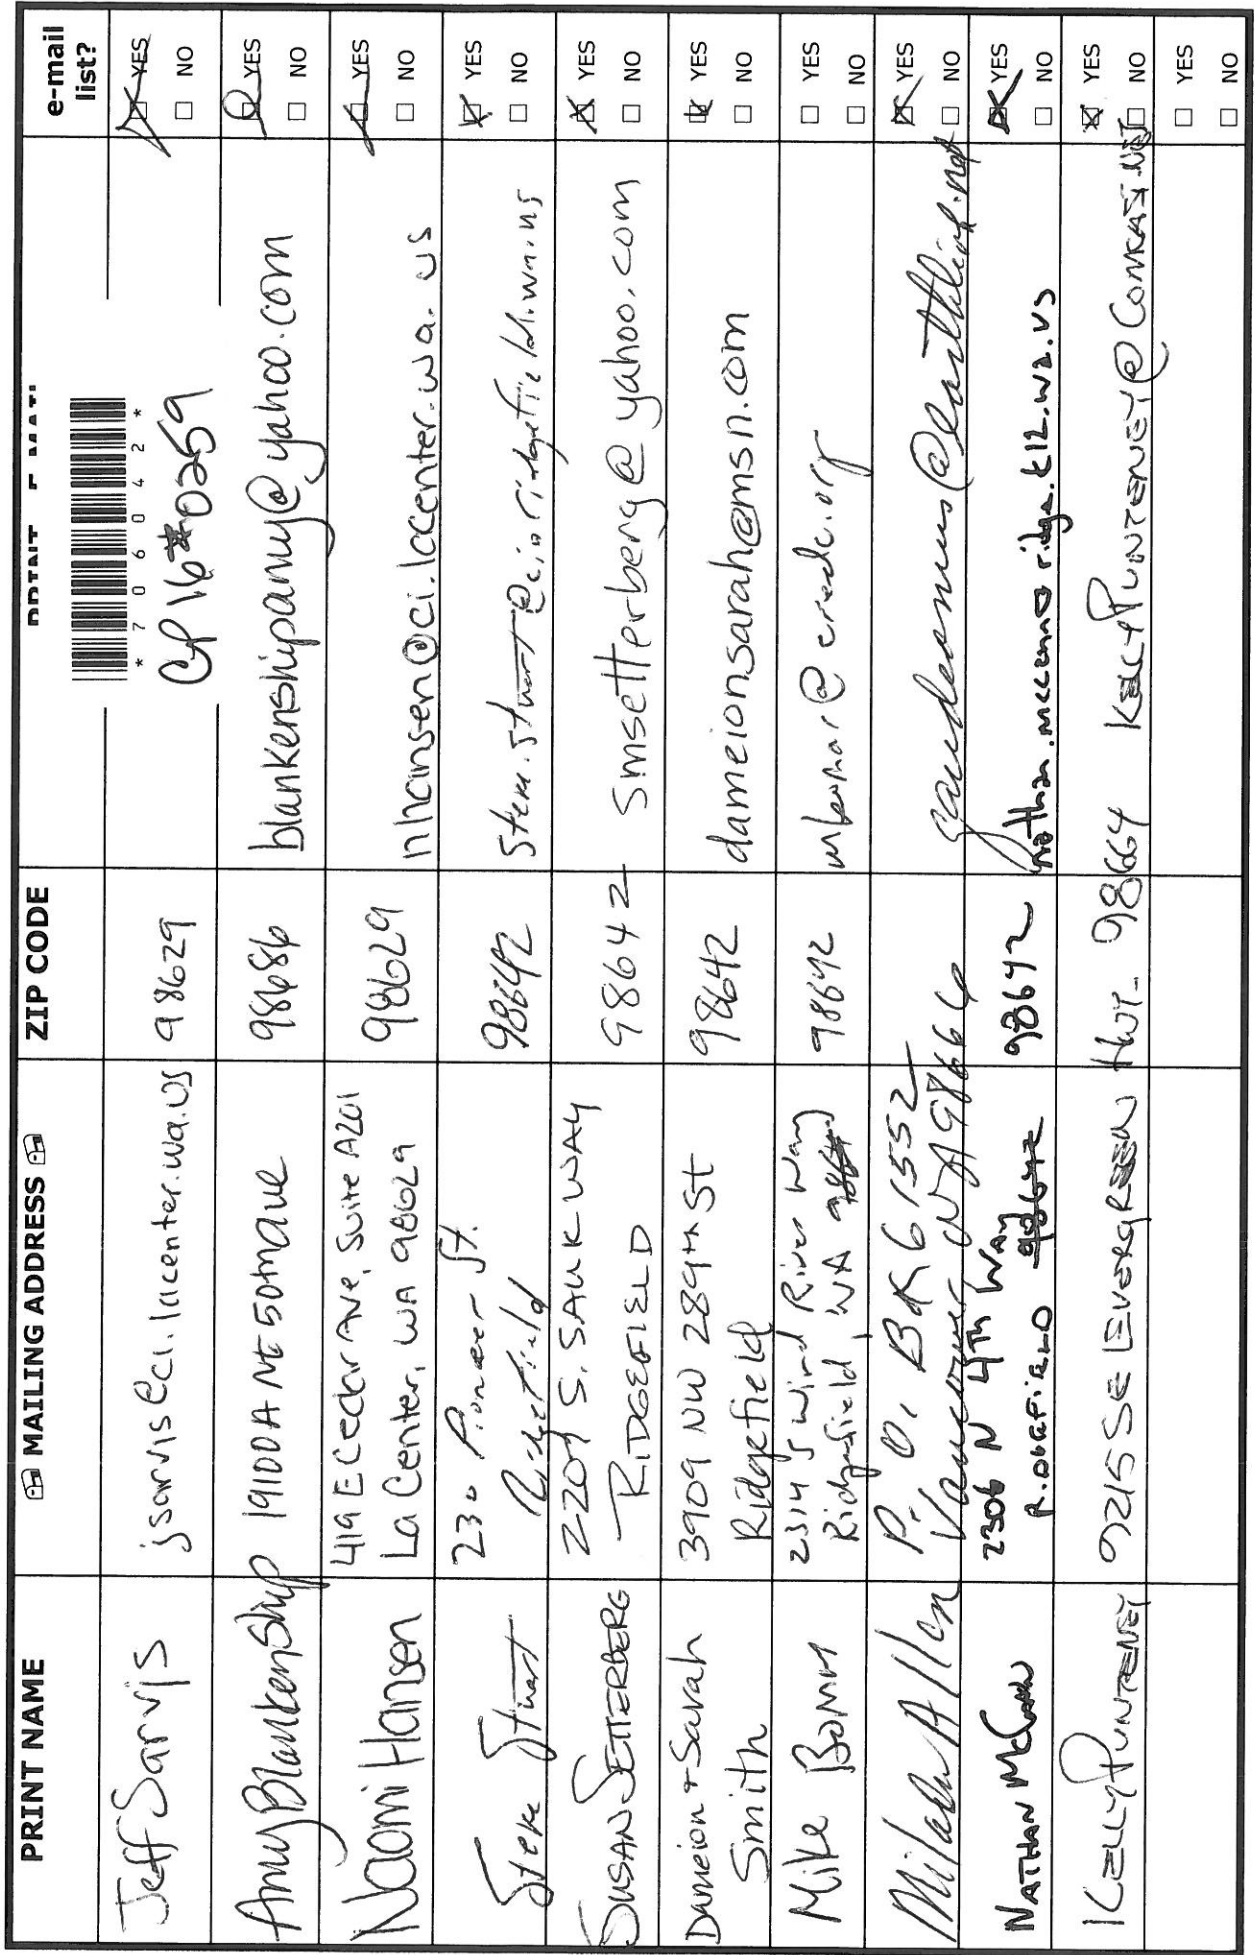 PRINT NAME
MAILING ADDRESS
ZIP CODE
e-mail
list?
* 7 0 6 0 4 2 *
CP16#0259
Jeff Sarvis
jsarvis@ci.lacenter.wa.us
98629
YES
NO
Amy Blankenship
19100A NE 50th Ave
98686
blankenshipamy@yahoo.com
YES
NO
Naomi Hansen
419 E Cedar Ave, Suite A201
La Center, WA 98629
98629
nhansen@ci.lacenter.wa.us
YES
NO
Steve Stuart
230 Pioneer St.
Ridgefield
98642
YES
NO
SUSAN SETTERBERG
2209 S. SAUK WAY
RIDGEFIELD
98642
smsetterberg@yahoo.com
YES
NO
Dameion + Sarah
Smith
3909 NW 289th St
Ridgefield
98642
dameionsarah@msn.com
YES
NO
Mike Bomar
2314 S Wind River Way
Ridgefield, WA
98642
mbomar@credc.org
YES
NO
Milada Allen
P. O. BX 61552
Vancouver WA 98666
YES
NO
NATHAN McCann
2306 N 4TH Way
RIDGEFIELD 98642
98642
nathan.mccann@ridge.k12.wa.us
YES
NO
KELLY PUNTENEY
9215 SE EVERGREEN HWY. 98664
KELLYPUNTENEY@COMCAST.NET
YES
NO
YES
NO